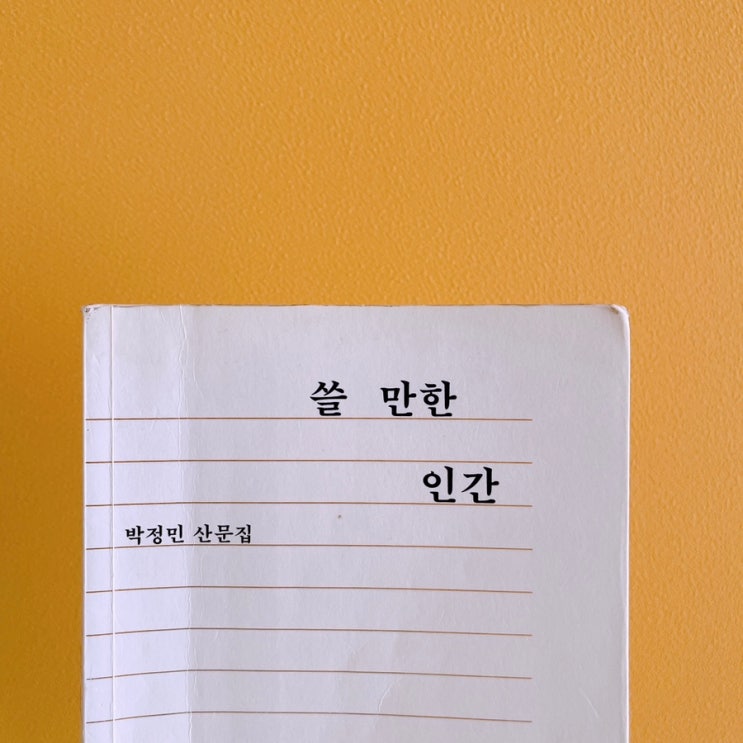 쓸 만한
인간
박정민 산문집